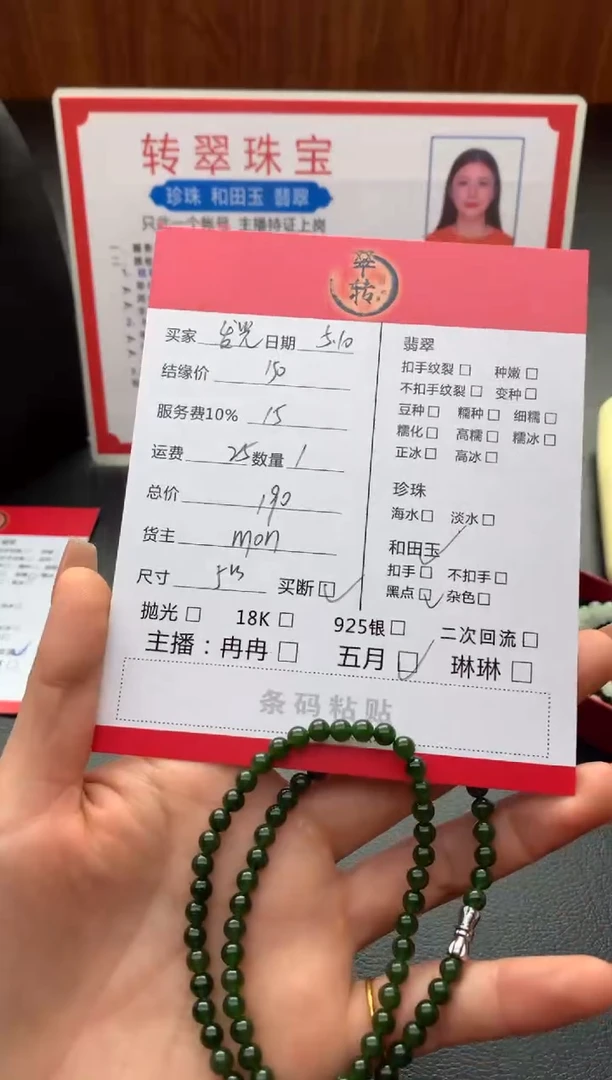 转翠珠宝
珍珠 和田玉 翡翠
只此一个账号 主播持证上岗
翠
转
买家 日期 5.10
结缘价 150
服务费10% 15
运费 25 数量 1
总价 190
货主 mon
尺寸 买断☑
翡翠
扣手纹裂□ 种嫩□
不扣手纹裂□ 变种□
豆种□ 糯种□ 细糯□
糯化□ 高糯□ 糯冰□
正冰□ 高冰□
珍珠
海水□ 淡水□
和田玉
扣手□ 不扣手□
黑点☑ 杂色□
抛光□ 18K□ 925银□ 二次回流□
主播：冉冉□ 五月☑ 琳琳□
条码粘贴